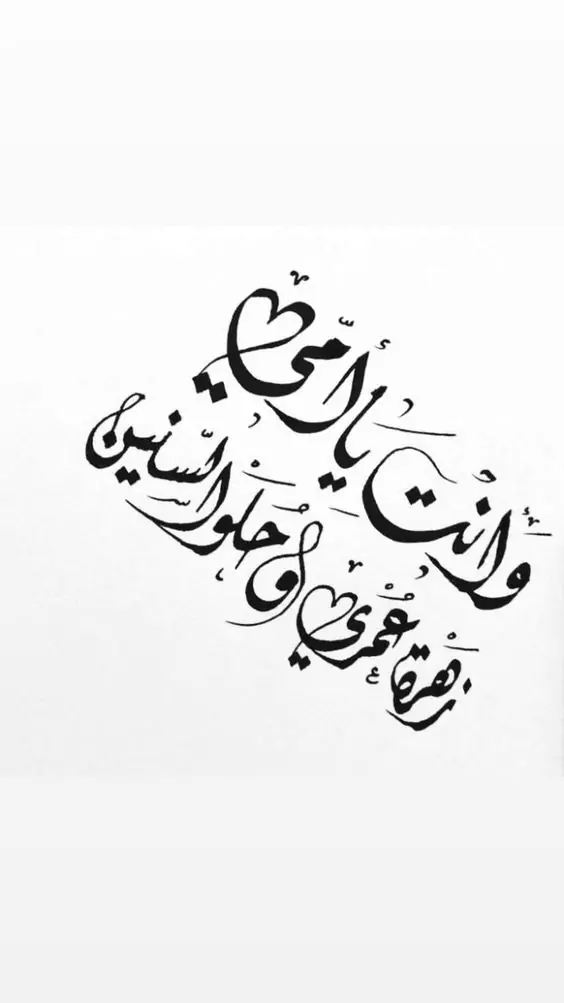 وَأنْتِ يا أُمّي
زَهْرةُ عُمْري وَ حَلْوَا السّنين